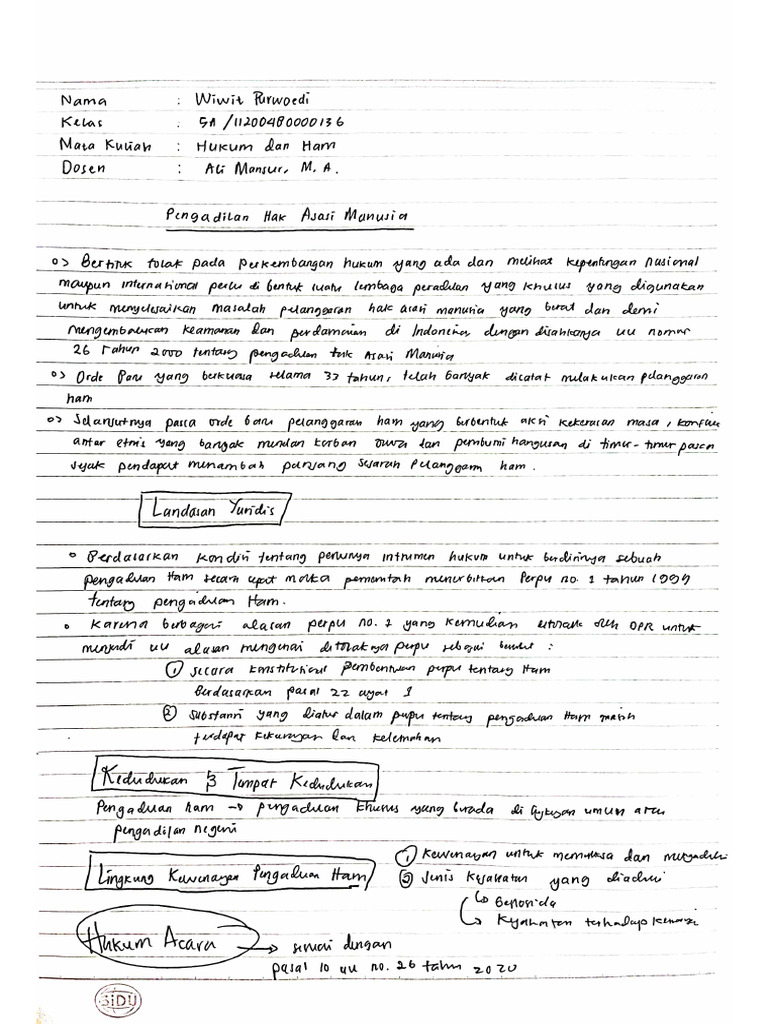 Nama : Wiwit Purwoedi
Kelas : 5A /11200480000136
Mata Kuliah : Hukum dan Ham
Dosen : Ali Mansur, M.A.
Pengadilan Hak Asasi Manusia
o> Bertitik tolak pada perkembangan hukum yang ada dan melihat kepentingan nasional
maupun international perlu di bentuk suatu lembaga peradilan yang khusus yang digunakan
untuk menyelesaikan masalah pelanggaran hak asasi manusia yang berat dan demi
mengembalikan keamanan dan perdamaian di Indonesia dengan disahkanya uu nomor
26 Tahun 2000 tentang pengadilan Hak Asasi Manusia
o> Orde Baru yang berkuasa selama 32 tahun, telah banyak dicatat melakukan pelanggaran
ham
o> Selanjutnya pasca orde baru pelanggaran ham yang berbentuk aksi kekerasan masa, konflik
antar etnis yang banyak korban dan pembumi hangusan di timur-timur pasca
sejak pendapat menambah panjang sejarah pelanggaran ham.
Landasan Yuridis
o Berdasarkan kondisi tentang perlunya intrumen hukum untuk berdirinya sebuah
pengadilan Ham secara cepat maka pemerintah menerbitkan Perpu no. 1 tahun 1999
tentang pengadilan Ham.
o Karena berbagai alasan perpu no. 1 yang kemudian ditolak oleh DPR untuk
menjadi uu alasan mengenai ditolaknya perpu sebagai berikut :
① secara konstitusional pembentukan perpu tentang Ham
Berdasarkan pasal 22 ayat 1
② substansi yang diatur dalam perpu tentang pengadilan Ham masih
terdapat kekurangan dan kelemahan
Kedudukan & Tempat Kedudukan
Pengadilan ham → pengadilan khusus yang berada di lingkungan umum atau
pengadilan negeri
Lingkung Kewenangan Pengadilan Ham
① kewenangan untuk memeriksa dan mengadili
② jenis kejahatan yang diadili
↳ Genosida
↳ Kejahatan terhadap
Hukum Acara → sesuai dengan
pasal 10 uu no. 26 tahun 2020
SIDU